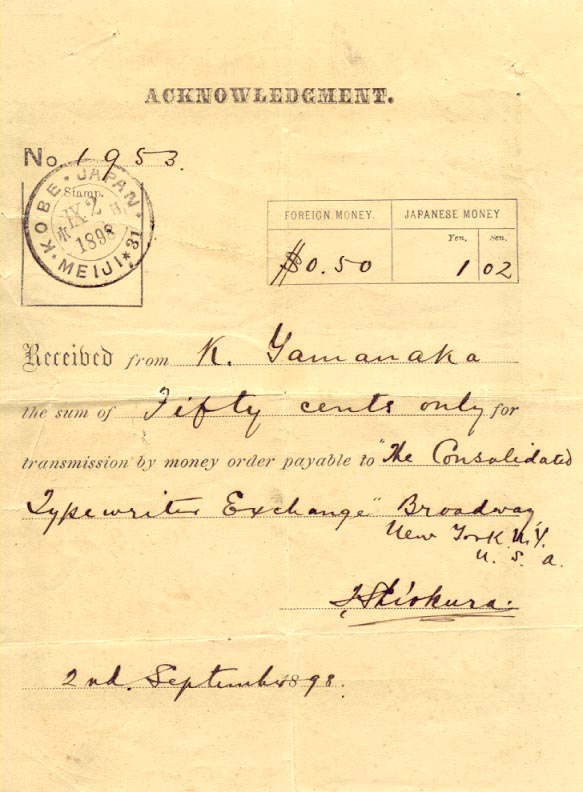 ACKNOWLEDGMENT.
No. 1953.
Stamp.
KOBE · JAPAN ·
IX 2
1898
· MEIJI * 31
FOREIGN MONEY. JAPANESE MONEY
Yen. Sen.
$0.50 1 02
Received from K. Yamanaka
the sum of Fifty cents only for
transmission by money order payable to "The Consolidated
Typewriter Exchange" Broadway
New York N.Y.
U. S. a.
Shiokura.
2nd. September 1898.